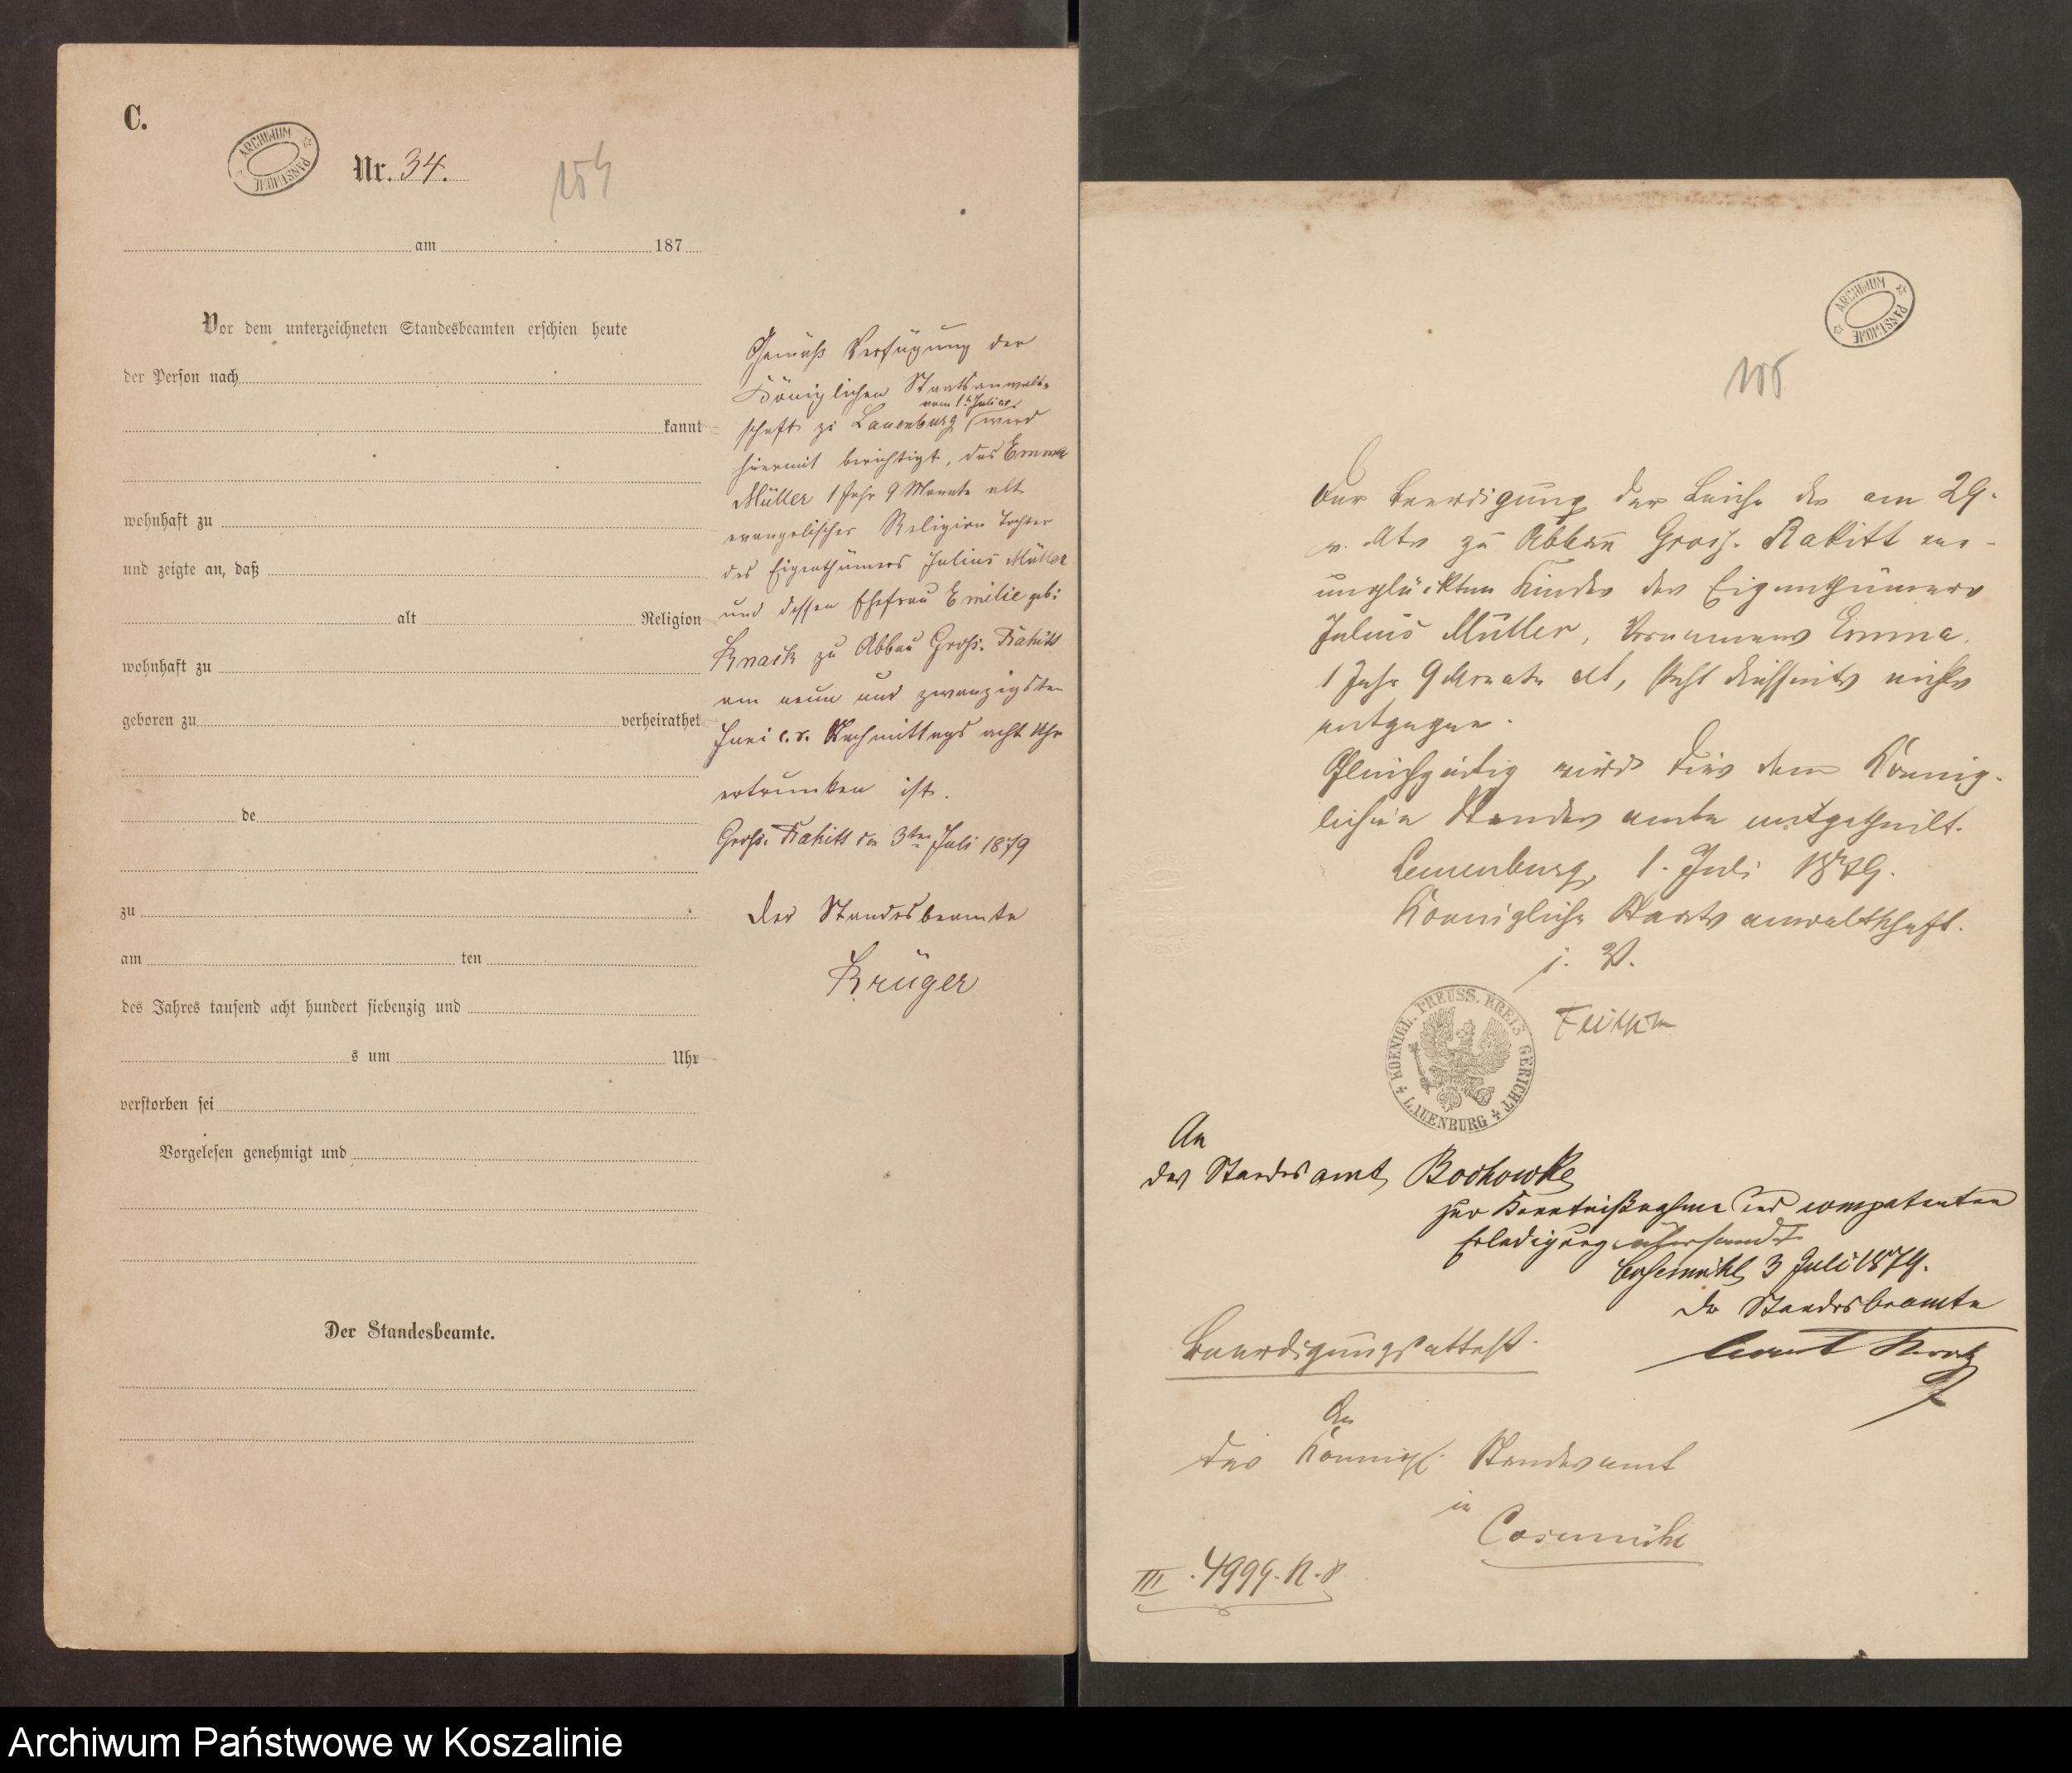 C.
ARCHIWUM PAŃSTWOWE
Nr. 34.
154
am 187
Vor dem unterzeichneten Standesbeamten erschien heute
der Person nach
kannt
wohnhaft zu
und zeigte an, daß
alt Religion
wohnhaft zu
geboren zu verheirathet
de
zu
am ten
des Jahres tausend acht hundert siebenzig und
s um Uhr
verstorben sei
Vorgelesen genehmigt und
Der Standesbeamte.
Gemäß Verfügung der
Königlichen Staatsanwalt-
vom 1t Juli cr.
schaft zu Lauenburg wird
hiermit berichtigt, das Emma
Müller 1 Jahr 9 Monate alt
evangelischer Religion Tochter
des Eigenthümers Julius Müller
und dessen Ehefrau Emilie geb:
Knack zu Abbau Groß. Rakitt
am neun und zwanzigsten
Juni c. Nachmittags acht Uhr
ertrunken ist.
Groß. Rakitt den 3ten Juli 1879
Der Standesbeamte
Krüger
ARCHIWUM PAŃSTWOWE
155
Der Beerdigung der Leiche des am 29.
v. Mts zu Abbau Gross. Rakitt ver-
unglückten Kindes des Eigenthümers
Julius Müller, Vornamens Emma,
1 Jahr 9 Monate alt, steht diesseits nichts
entgegen.
Gleichzeitig wird dies dem Koenig-
lichen Standesamte mitgetheilt.
Lauenburg, 1. Juli 1879.
Koenigliche Staatsanwaltschaft.
i. V.
KOENIGL. PREUSS. KREIS GERICHT LAUENBURG
An
das Standesamt Bochowke
zur Kenntnißnahme und competenten
Erledigung übersandt
3 Juli 1879.
Der Standesbeamte
Beerdigungsattest.
An
das Koenigl. Standesamt
in
Cosemühl
III. 4999. N. P.
Archiwum Państwowe w Koszalinie